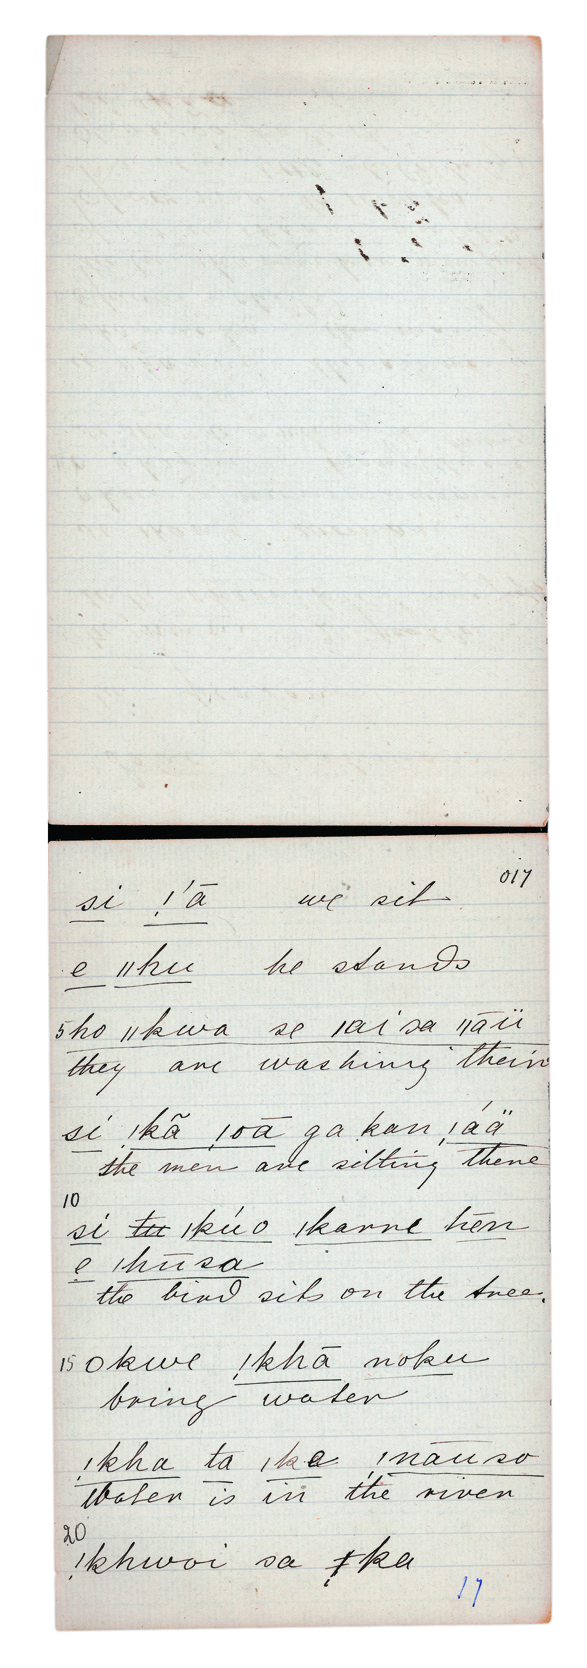 017
si ǃ'ā we sit
e ǁhu he stands
5 ho ǁkwa se ǀai sa ǁāü
they are washing their
si ǃkã ǃoā ga kan ǃáä
the men are sitting there
10
si tu ǀkúo ǀkarre hēn
e ǀhūsa
the bird sits on the tree.
15 okwe ǃkhā noku
bring water
ǃkha ta ǀke ǃnāuso
Water is in the river
20
ǃkhwoi sa ǂka
17